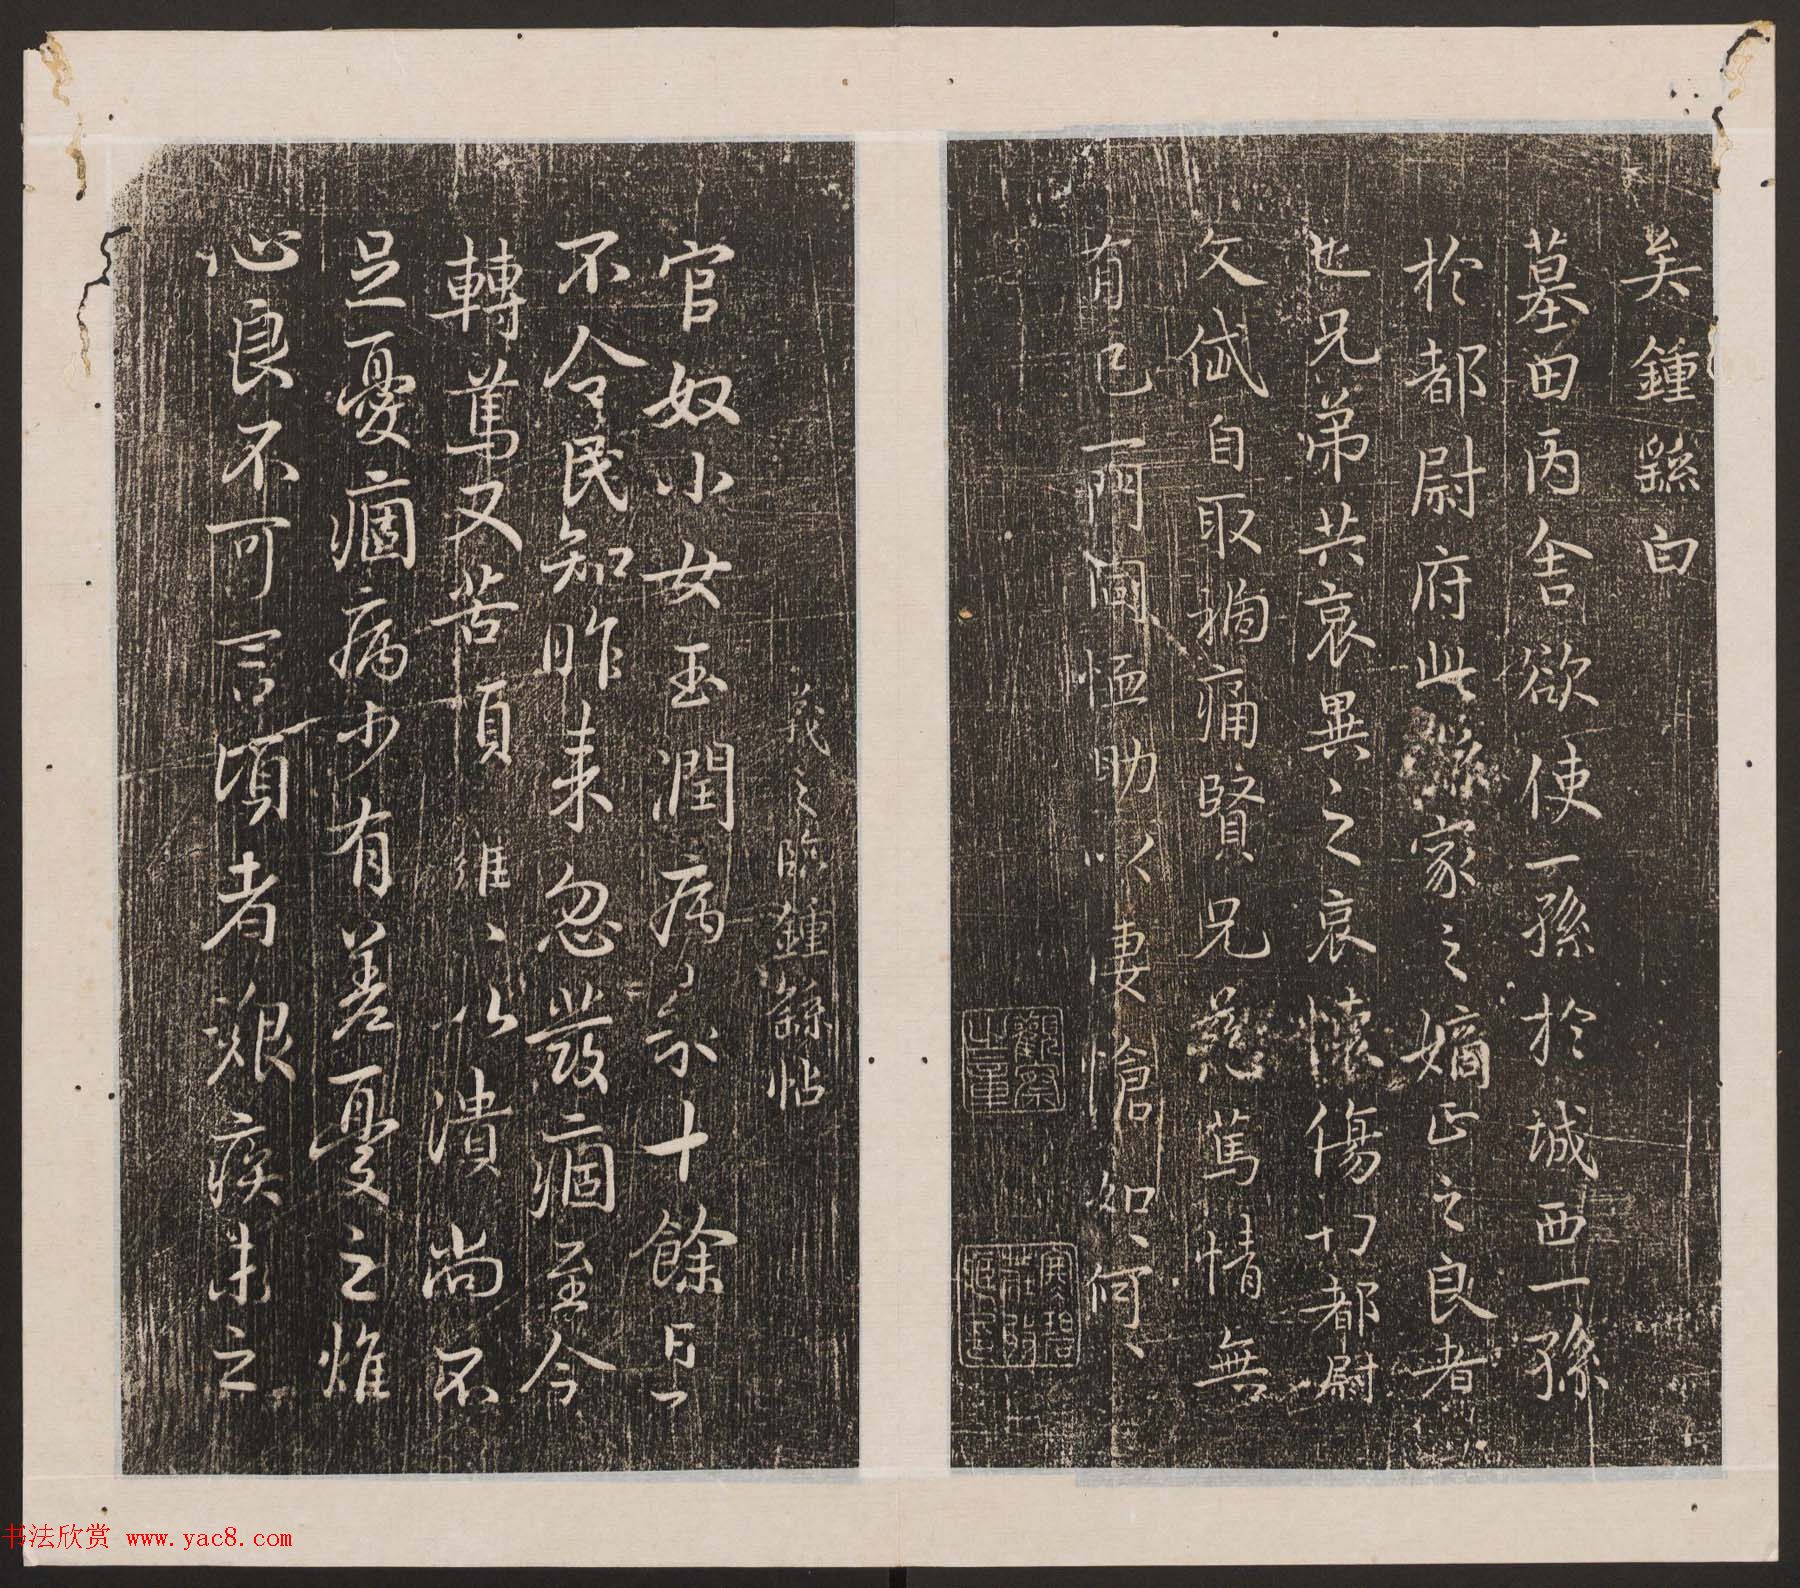 矣鍾繇白
墓田丙舍欲使一孫於城西一孫
於都尉府此繇家之嫡正之良者
也兄弟共哀異之哀懷傷切都尉
文岱自取禍痛賢兄慈篤情無
有已一門同恤助以悽愴如何
羲之臨鍾繇帖
官奴小女玉潤病來十餘日了
不令民知昨來忽發痼至今
轉篤又苦頭癰頭癰以潰尚不
足憂痼病少有差憂之燋
心良不可言頃者艱疾未之
書法欣赏 www.yac8.com